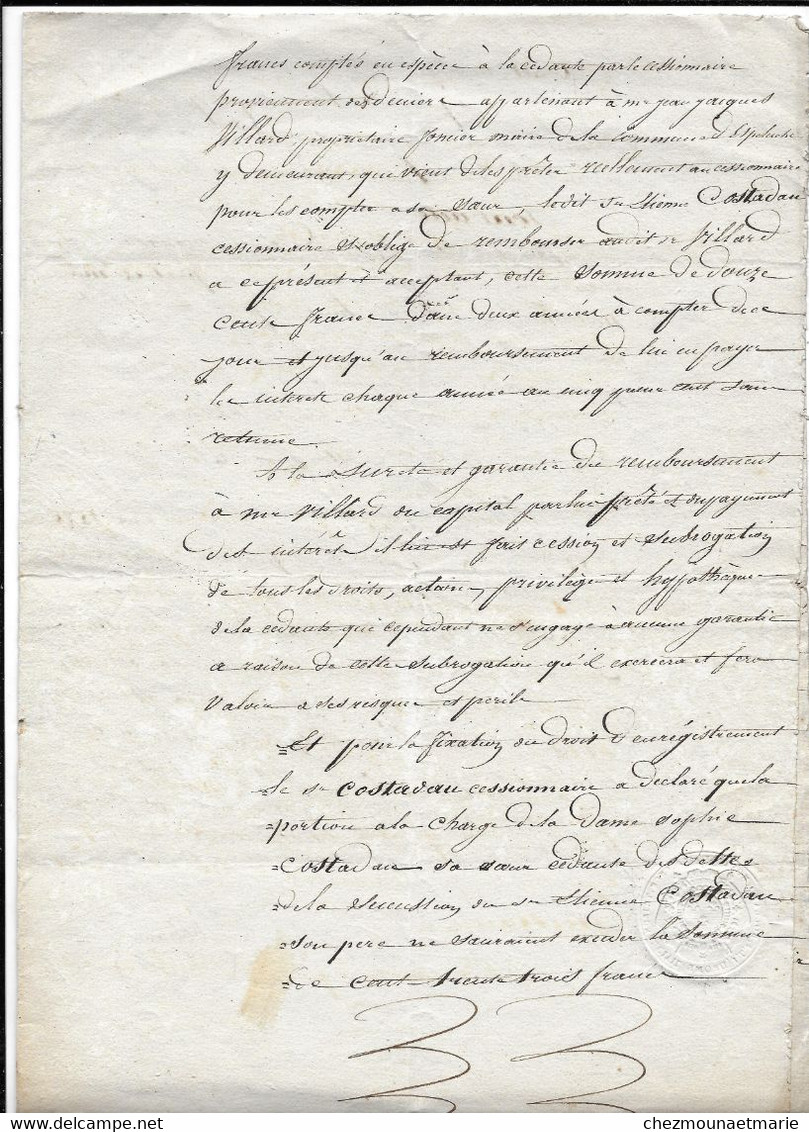 francs comptés en espèce à la cédante par le cessionnaire
proviennent des deniers appartenant à mr jean jacques
Villard, propriétaire foncier maire de la commune d'Espeluche
y demeurant, qui vient de les prêter réellement au cessionnaire
pour les compter a sa sœur, ledit sr Etienne Costadau
cessionnaire s'oblige de rembourser audit sr Villard
a ce présent et acceptant, cette somme de douze
cents francs dans deux années à compter de ce
jour et jusqu'au remboursement de lui en payer
les intérêts chaque année au cinq pour cent sans
retenue.
A la sureté et garantie du remboursement
à mr Villard du capital par lui prêté et du payement
des intérêts il lui est fait cession et subrogation
de tous les droits, actions, privilège et hypothèque
de la cédante qui cependant ne s'engage à aucune garantie
a raison de cette subrogation qu'il exercera et fera
valoir a ses risques et perils
=Et pour la fixation du droit d'enregistrement
=le sr Costadau cessionnaire a déclaré que la
=portion a la charge de la dame sophie
=Costadau sa sœur cédante des dettes
=de la succession du sr Etienne Costadau
=son pere ne sauraient exceder la somme
=de cent trente trois francs
chezmounaetmarie